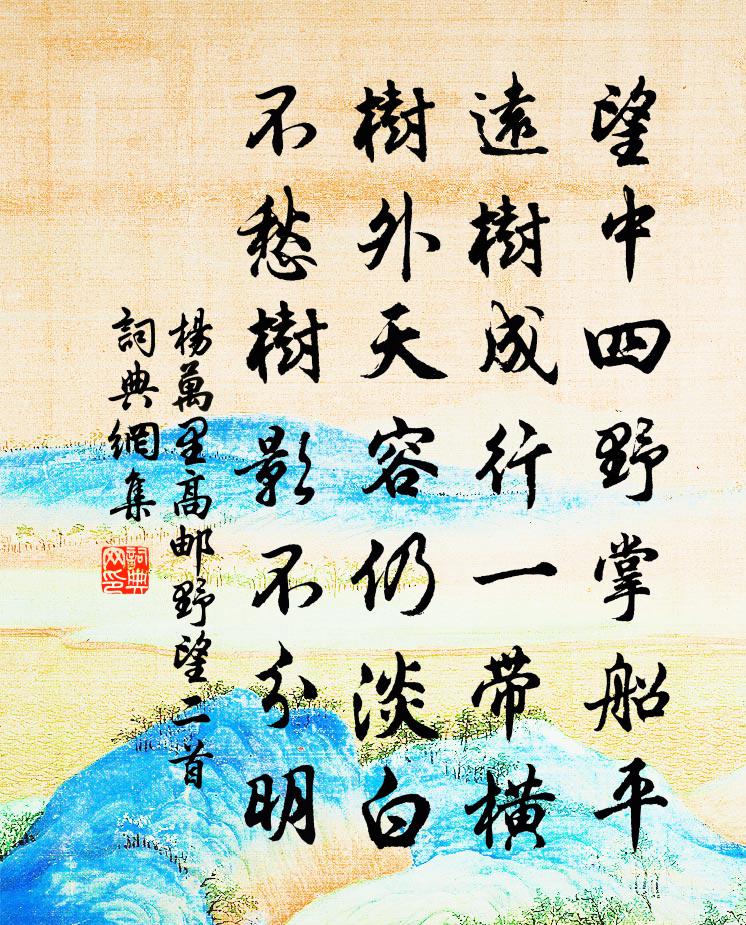 望中四野掌船平
遠樹成行一带橫
樹外天容仍淡白
不愁樹影不分明
楊萬里高邮野望二首
詞典網集
詞典网印